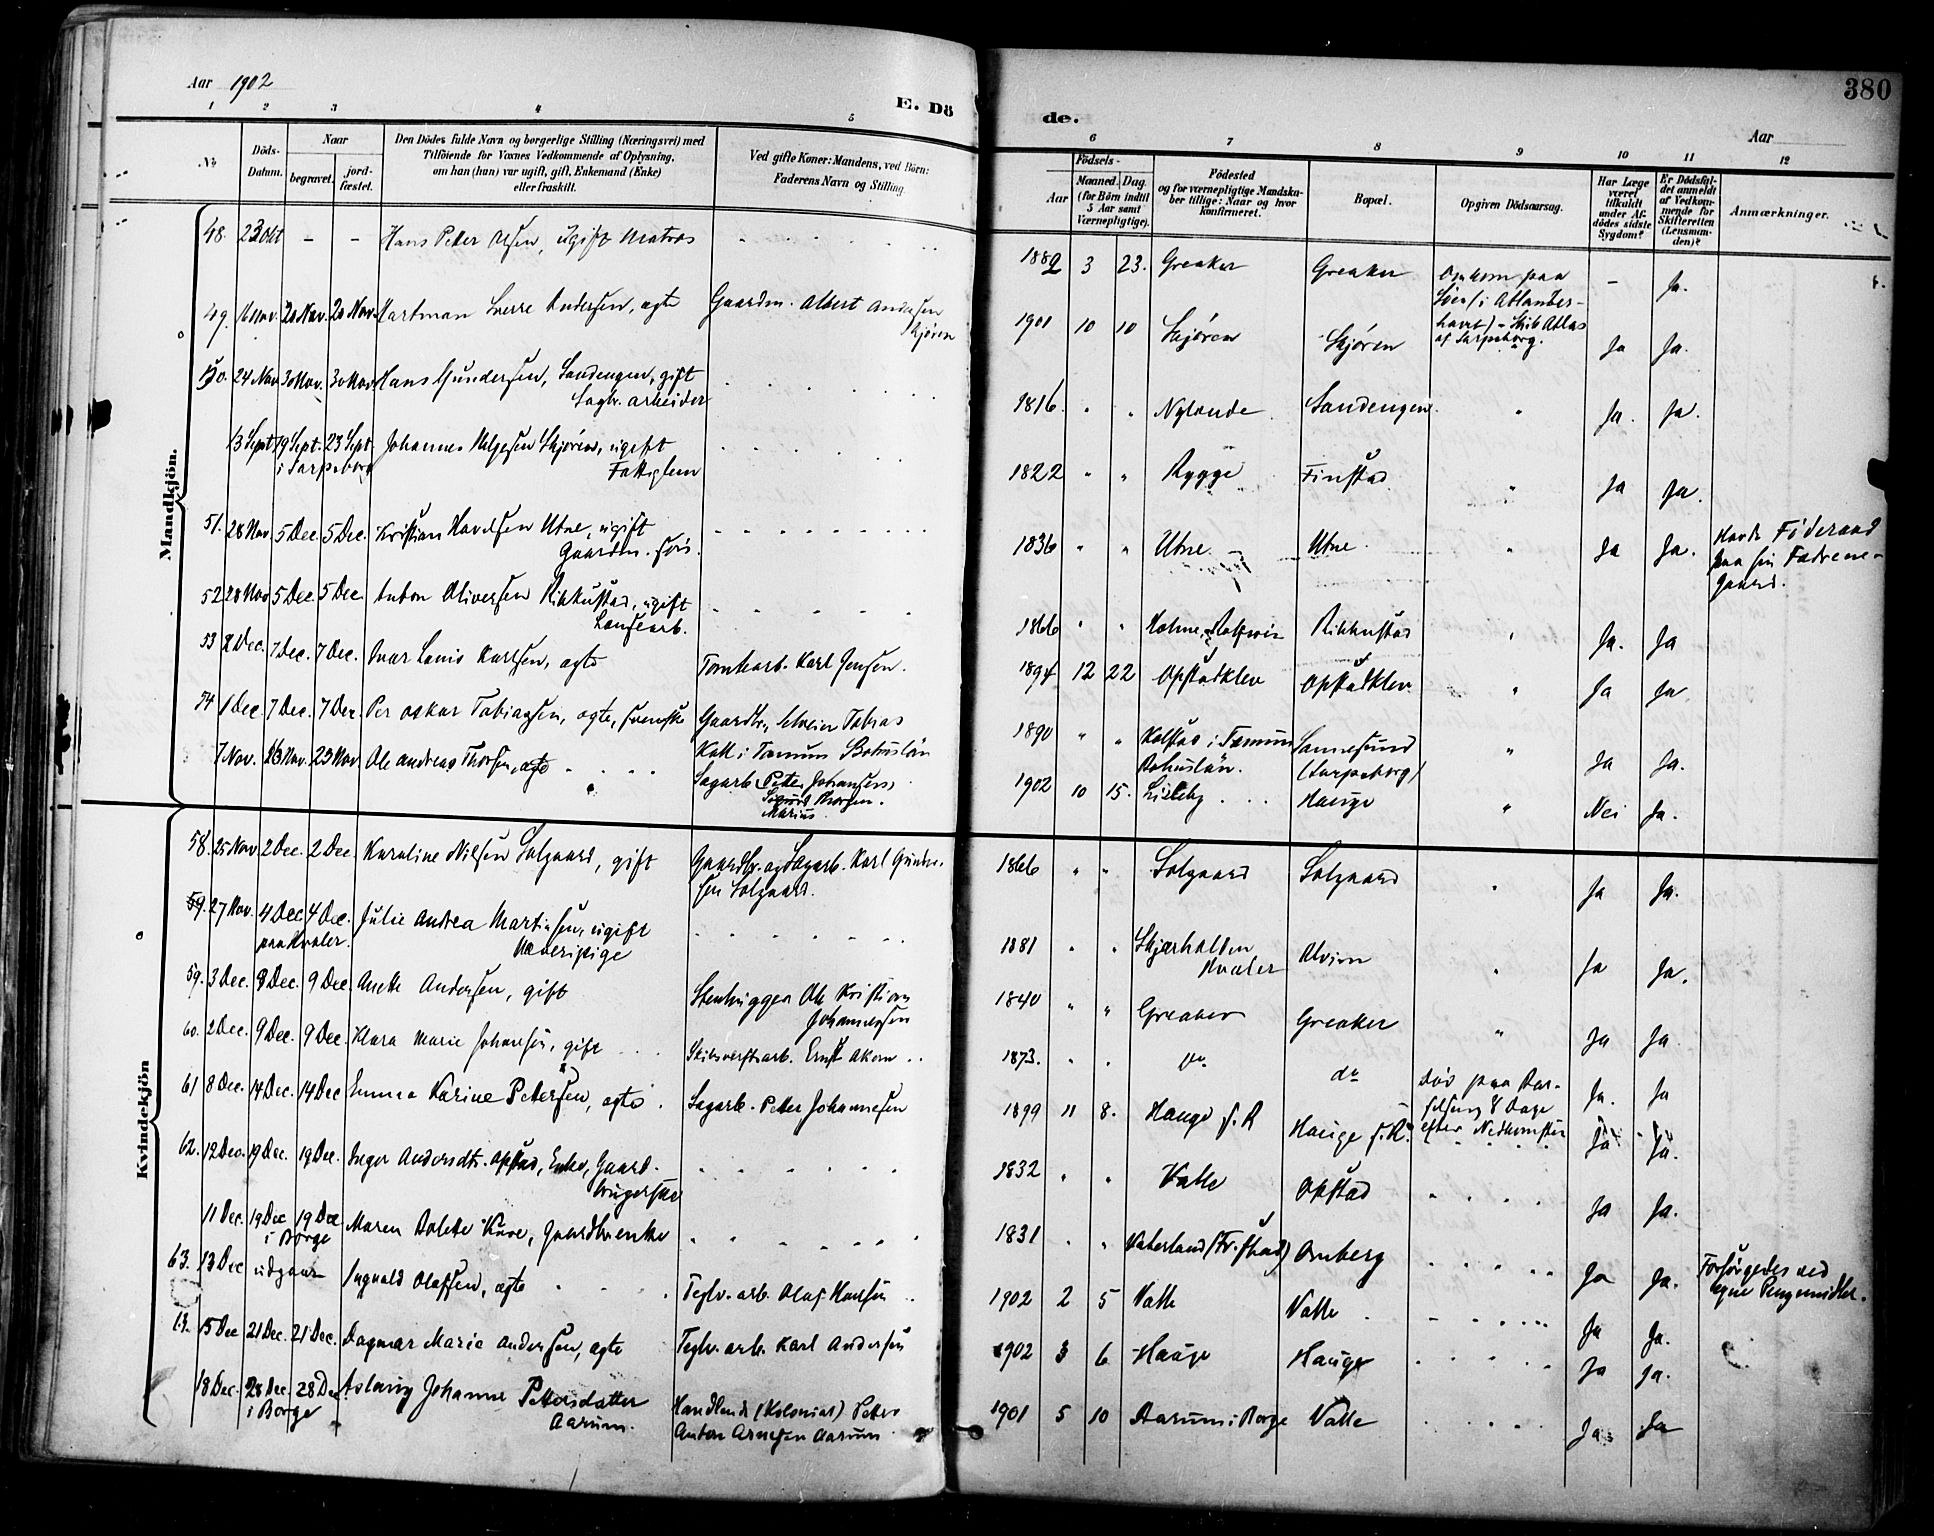 Aar 1902
E. Dö
de.
Aar
380
1 2 3 4 5 6 7 8 9 10 11 12
No
Döds-Datum.
Naar
begravet.
jord-fæstet.
Den Dödes fulde Navn og borgerlige Stilling (Næringsvei) med
Tilföiende for Voxnes Vedkommende af Oplysning,
om han (hun) var ugift, gift, Enkemand (Enke)
eller fraskilt.
Ved gifte Koner: Mandens, ved Börn:
Faderens Navn og Stilling.
Födsels-
Aar
Maaned. Dag.
(for Börn indtil
5 Aar samt
Værnepligtige).
Födested
og for værnepligtige Mandska-
ber tillige: Naar og hvor
Konfirmeret.
Bopæl.
Opgiven Dödsaarsag.
Har Læge
været
tilkaldt
under Af-
dödes sidste
Sygdom?
Er Dödsfal-
det anmeldt
af Vedkom-
mende for
Skifteretten
(Lensman-
den)?
Anmærkninger.
Mandkjön.
48. 23 Okt - - Hans Peter Olsen, ugift Matros 1882 3 23. Greaker Greaker Omkom paa - Ja.
Søen (i Atlanter-
havet) - Skib Atlas
af Sarpsborg.
49. 16 Nov. 20 Nov. 20 Nov. Hartman Sverre Andersen, ægte Gaardm. Albert Andersen 1901 10 10 Skjøren Skjøren Ja Ja.
Skjøren
50. 24 Nov 30 Nov. 30 Nov. Hans Gundersen, Sandengen, gift 1816. " " Nylende Sandengen " Ja. Ja.
Sagbr. arbeider
13 Sept. 19 Sept. 23 Sept. Johannes Helgesen Skjøren, ugift 1822 " " Rygge Finstad " Ja Ja.
i Sarpsborg Fattiglem
51. 28 Nov. 5 Dec. 5 Dec. Kristian Havelsen Utne, ugift 1836 " " Utne. Utne. " Ja Ja. Havde Föderaad
Gaardm. søn. paa sin Fædrene-
gaard.
52 28 Nov 5 Dec. 5 Dec. Anton Oliversen Rikkustad, ugift 1866 " " Holme, Rolfsøen Rikkustad " Ja. Ja
Løusearb.
53 2 Dec. 7 Dec. 7 Dec. Ivar Louis Karlsen, ægte Tomtearb. Karl Jensen. 1894 12 22 Opstadklev Opstadklev " Ja Ja
54 1 Dec. 7 Dec. 7 Dec. Per Oskar Tobiassen, ægte, svenske Gaardbr., Tobias 1890 " " Kalstad i Tanum Sannesund " Ja Ja.
Kall i Tanum Bohuslän Bohuslän. (Sarpsborg)
7 Nov. 16 Nov. 23 Nov Ole Andreas Thorsen, ægte Sagarb. Petter Johansen, 1902 10 15. Lisleby Hauge " Nei Ja.
Sigurd Thorsen.
Marius.
Kvindekjön
58. 25 Nov. 2 Dec. 2 Dec. Karoline Nilsen Solgaard, gift Gaardbr. og Sagarb. Karl Gunder- 1866 " " Solgaard Solgaard " Ja Ja.
sen Solgaard.
59. 27 Nov. 4 Dec. 4 Dec. Julie Andrea Martinsen, ugift 1881 " " Skjærhalden Alvim " Ja Ja.
paa Hvaler. Væveripige Hvaler
59. 3 Dec. 9 Dec. 9 Dec. Anette Andersen, gift Stenhugger Ole Kristian 1840 " " Greaker Greaker " Ja Ja.
Johannessen
60. 2 Dec. 9 Dec. 9 Dec. Klara Marie Johansen, gift Skibsverftsarb. Ernst Akern 1873. " " do do død paa Bar- Ja. Ja
selseng 8 Dage
efter Nedkomsten
61 8 Dec. 14 Dec. 14 Dec Emma Karine Pettersen, ægte. Sagarb. Petter Johannesen 1899 11 8. Hauge s. R Hauge s. R. Ja Ja.
62. 12 Dec. 19 Dec. 19 Dec. Inger Andersdtr. Opstad, Enke, Gaard- 1832 " " Valle Opstad Ja Ja.
brugerske
11 Dec. 19 Dec 19 Dec Maren Bolette Kure, Gaardbr. enke 1831 " " Vaterland (Fr.stad) Omberg Ja Ja. Forsörgedes ved
i Borge egne Pengemidler.
63. 13 Dec udgaar Ingvald Olafsen, ægte Teglv. arb. Olaf Hansen 1902 2 5 Valle Valle Ja Ja.
63. 15 Dec 21 Dec. 21 Dec. Dagmar Marie Andersen, ægte Teglv. arb. Karl Andersen 1902 3 6 Hauge Hauge Ja Ja.
18 Dec. 28 Dec. 28 Dec. Aslaug Johanne Pettersdatter Handlende (Kolonial) Petter 1901 5 10 Aarum i Borge Valle Ja. Ja
i Borge Aarum. Anton Arnesen Aarum